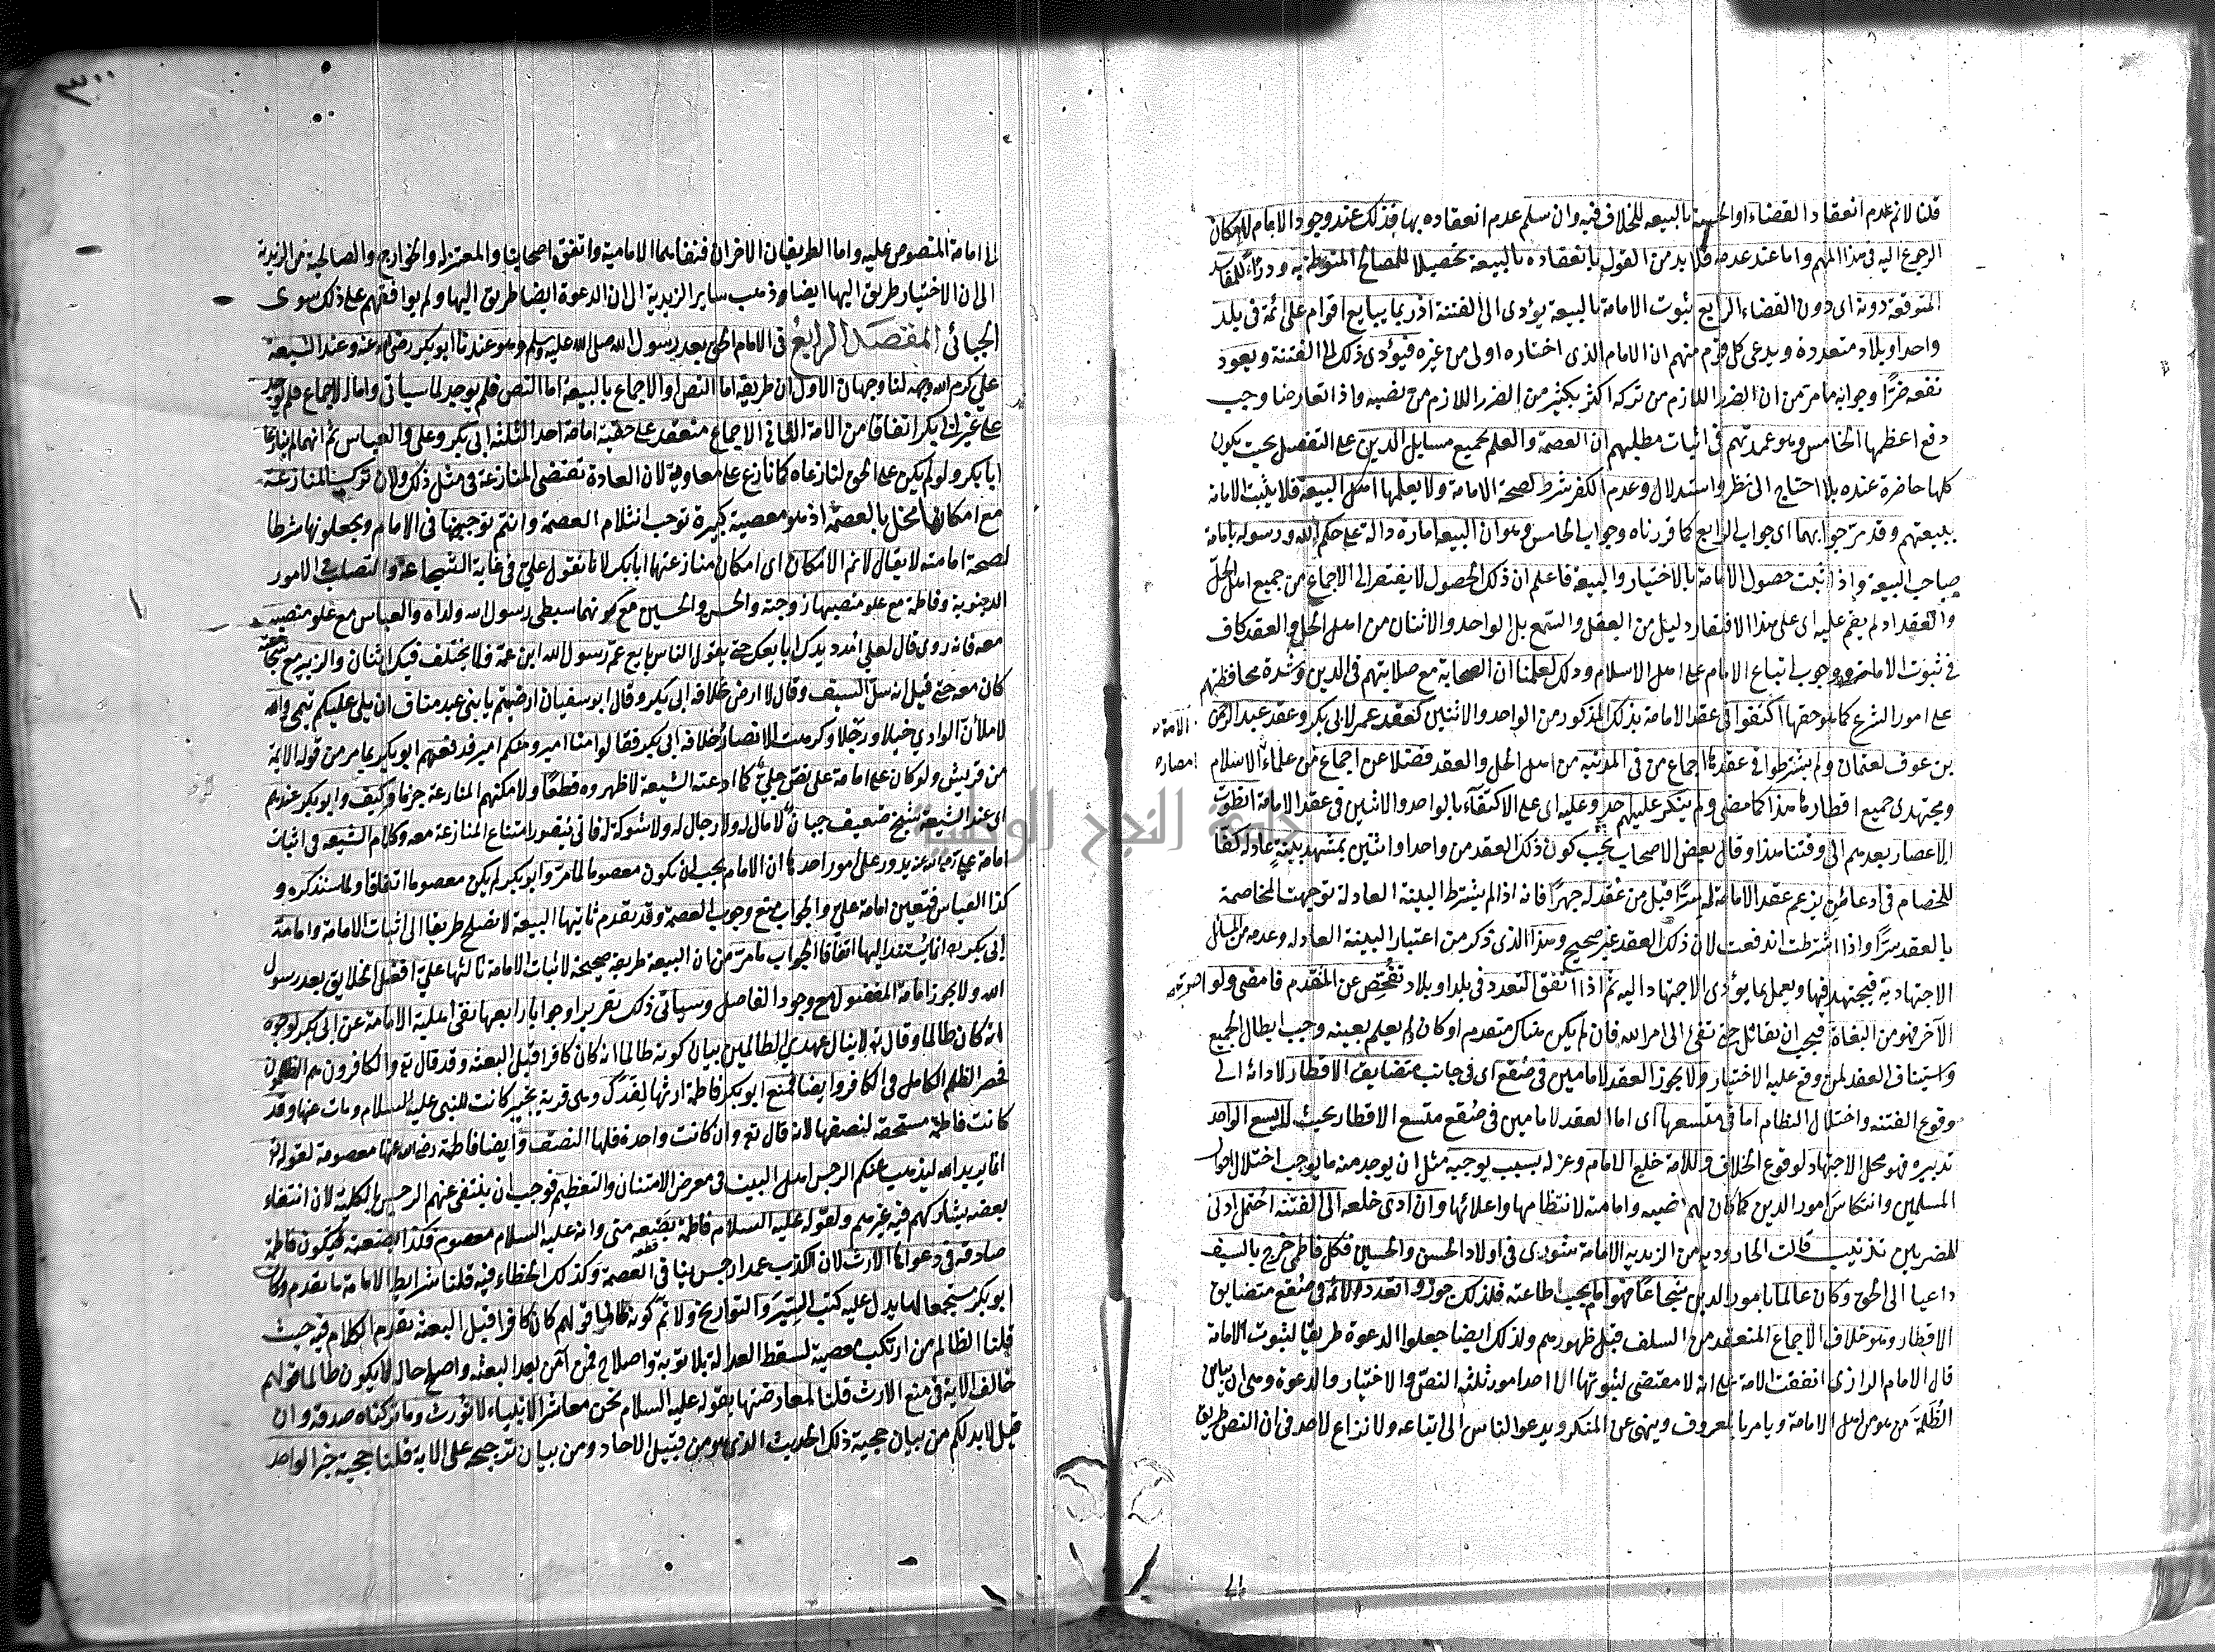 قلنا لا نم عدم انعقاد القضاء او الحسبة بالبيعه للخلاف فيه وان سلم عدم انعقاده بها فذلك عند وجود الامام لامكان
الرجوع اليه فى هذا المهم واما عند عدمه فلا بد من القول بانعقاده بالبيعة تحصيلا للمصالح المنوطة به ودرءا للمفاسد
المتوقعة دونه اى دون القضاء الرابع ثبوت الامامة بالبيعة يؤدى الى الفتنة اذ ربما يبايع اقوام على ائمة فى بلد
واحد او بلاد متعددة ويدعى كل قوم منهم ان الامام الذى اختاره اولى من غيره فيؤدى ذلك الى الفتنة ويعود
نفعه ضرًا وجوابه ما مر من ان الضرر اللازم من تركه اكثر بكثير من الضرر اللازم من نصبه واذا تعارضا وجب
دفع اعظمها الخامس وهو عمدتهم فى اثبات مطلبهم ان العصمة والعلم بجميع مسايل الدين على التفصيل بحيث يكون
كلها حاضرة عنده بلا احتياج الى نظر واستدلال وعدم الكفر شرط لصحة الامامة ولا يعلمها اهل البيعة فلا يثبت الامامة
ببيعتهم وقد مر جوابهما اى جواب الرابع كما قررناه وجواب الخامس وهو ان البيعه امارة دالة على حكم الله ورسوله بامامة
صاحب البيعة واذا ثبت حصول الامامة بالاختيار والبيعة فاعلم ان ذلك الحصول لا يفتقر الى الاجماع من جميع اهل الحل
والعقد اذ لم يقم عليه اى على هذا الافتقار دليل من العقل والسمع بل الواحد والاثنان من اهل الحل والعقد كاف
فى ثبوت الامامة ووجوب اتباع الامام على اهل الاسلام وذلك لعلمنا ان الصحابة مع صلابتهم فى الدين وشدة محافظتهم
على امور الشرع كما هو حقها اكتفوا فى عقد الامامة بذلك المذكور من الواحد والاثنين كعقد عمر لابى بكر وعقد عبد الرحمن
بن عوف لعثمان ولم يشترطوا فى عقدها اجماع من فى المدينة من اهل الحل والعقد فضلا عن اجماع من علماء الاسلام
ومجتهدى جميع اقطارها هذا كما مضى ولم ينكر عليهم احد وعليه اى على الاكتفاء بالواحد والاثنين فى عقد الامامة انطوت
الاعصار بعدهم الى وقتنا هذا وقال بعض الاصحاب يجب كون ذلك العقد من واحد او اثنين بمشهد بينة عادلة كفا
للخصام فى ادعاء من يزعم عقد الامامة له سرًا قبل من عُقد له جهرًا فانه اذا لم يشترط البينة العادلة توجهت المخاصمة
بالعقد سرًا واذا اشترطت اندفعت لان ذلك العقد غير صحيح وهذا الذى ذكر من اعتبار البينة العادله وعدمه من المسائل
الاجتهادية فيجتهد فيها ويعمل بما يؤدى الاجتهاد اليه ثم اذا اتفق التعدد فى بلد او بلاد تفحص عن المتقدم فامضى ولو اصر
الآخر فهو من البغاة فيجب ان يقاتل حتى تفئ الى امر الله فان لم يكن هناك متقدم او كان ولم يعلم بعينه وجب ابطال الجميع
واستيناف العقد لمن وقع عليه الاختيار ولا يجوز العقد لامامين فى صُقع اى فى جانب متضايق الاقطار لادائه الى
وقوع الفتنه واختلال النظام اما فى متسعها اى اما العقد لامامين فى صُقع متسع الاقطار بحيث لا يسع الواحد
تدبيره فهو محل الاجتهاد لوقوع الخلاف وللامة خلع الامام وعزله بسبب يوجبه مثل ان يوجد منه ما يوجب اختلال احوال
المسلمين وانتكاس امور الدين كما كان لهم نصبه وامامته لانتظامها واعلائها وان ادى خلعه الى الفتنه احتمل ادنى
المضرتين تذنيب قالت الجاروديه من الزيديه الامامة شورى فى اولاد الحسن والحسين فكل فاطمى خرج بالسيف
داعيا الى الحق وكان عالما بامور الدين شجاعًا فهو امام يجب اطاعته فلذلك جوزوا تعدد الائمة فى صُقع متضايق
الاقطار وهو خلاف الاجماع المنعقد من السلف قبل ظهورهم ولذلك ايضا جعلوا الدعوة طريقا لثبوت الامامة
قال الامام الرازى اتفقت الامة على انه لا مقتضى لثبوتها الا احد امور ثلثه النص والاختيار والدعوة وهى ان يباين
الظَلَمة من هو من اهل الامامة ويامر بالمعروف وينهى عن المنكر ويدعو الناس الى اتباعه ولا نزاع لاحد فى ان النص طريق
الى امامة المنصوص عليه واما الطريقان الاخران فنفاهما الامامية واتفق اصحابنا والمعتزلة والخوارج والصالحية من الزيدية
الى ان الاختيار طريق اليها ايضا وذهب ساير الزيدية الى ان الدعوة ايضا طريق اليها ولم يوافقهم على ذلك سوى
الجبائى المقصد الرابع فى الامام الحق بعد رسول الله صلى الله عليه وسلم وهو عندنا ابو بكر رضى الله عنه وعند الشيعة
على كرم الله وجهه لنا وجهان الاول ان طريقه اما النص او الاجماع بالبيعة اما النص فلم يوجد لما سيأتى واما الاجماع فلم يوجد
على غير ابى بكر اتفاقا من الامة الثانى الاجماع منعقد على حقية امامة احد الثلثه ابى بكر وعلى والعباس ثم انهما لم ينازعا
ابا بكر ولو لم يكن على الحق لنازعاه كما نازع على معاوية لان العادة تقتضى المنازعة فى مثل ذلك ولان ترك المنازعة
مع امكانها مخل بالعصمة اذ هو معصية كبيرة توجب انثلام العصمة وانتم توجبونها فى الامام وتجعلونها شرطا
لصحة امامته لا يقال لا نم الامكان اى امكان منازعتهما ابا بكر لانا نقول على فى غاية الشجاعة والتصلب فى الامور
الدينية وفاطمة مع علو منصبها زوجته والحسن والحسين مع كونهما سبطى رسول الله ولداه والعباس مع علو منصبه
معه فانه روى قال لعلى امدد يدك ابايعك حتى يقول الناس بايع عم رسول الله ابن عمه فلا يختلف فيك اثنان والزبير مع شجاعته
كان معه حتى قيل انه سل السيف وقال لا ارضى خلافه ابى بكر وقال ابو سفيان ارضيتم يا بنى عبد مناف ان يلى عليكم تيمى والله
لاملأن الوادى خيلا ورجلا وكرهت الانصار خلافه ابى بكر فقالوا منا امير ومنكم امير فدفعهم ابو بكر بما مر من قوله الائمة
من قريش ولو كان على امامة على نص جلى كما ادعته الشيعة لاظهروه قطعًا ولامكنهم المنازعة جزما وكيف وابو بكر عندهم
اى عند الشيعة شيخ ضعيف جبان لا مال له ولا رجال له ولا شوكة له فانى يُتصور امتناع المنازعة معه وكلام الشيعه فى اثبات
امامة على يدور على امور احدها ان الامام يجب ان يكون معصوما لما مر وابو بكر لم يكن معصوما اتفاقا ولما سنذكره و
كذا العباس فتعين امامة على والجواب منع وجوب العصمة وقد تقدم ثانيها البيعة لا تصلح طريقا الى اثبات الامامة وامامة
ابى بكر انما يُستند اليها اتفاقا الجواب ما مر من ان البيعة طريقه صحيحة لاثبات الامامة ثالثها على افضل الخلايق بعد رسول
الله ولا يجوز امامة المفضول مع وجود الفاضل وسيأتى ذلك تقريرا وجوابا رابعها نفى اهلية الامامة عن ابى بكر لوجوه
انه كان ظالما وقال تع لا ينال عهدى الظالمين بيان كونه ظالما انه كان كافرا قبل البعثه وقد قال تع والكافرون هم الظالمون
فحصر الظلم الكامل فى الكافر وايضا فمنع ابو بكر فاطمة ارثها لِفَدَك وهى قرية بخيبر كانت للنبى عليه السلام ومات عنها وقد
كانت فاطمة مستحقه لنصفها لانه قال تع وان كانت واحدة فلها النصف وايضا فاطمة رضى الله عنها معصومة لقوله تع
انما يريد الله ليذهب عنكم الرجس اهل البيت فى معرض الامتنان والتعظيم فوجب ان ينتفى عنهم الرجس بالكلية لان انتفاء
بعضه يشاركهم فيه غيرهم ولقوله عليه السلام فاطمة بَضعة منى وانه عليه السلام معصوم فكذا بضعته فيكون فاطمة
صادقه فى دعواها الارث لان الكذب عمدا رجس ينافى العصمة وكذلك الخطاء فيه قلنا شرايط الامامة ما تقدم وكان
ابو بكر مستجمعا لها يدل عليه كتب السِيَر والتواريخ ولا نم كونه ظالما قولهم كان كافرا قبل البعثه تقدم الكلام فيه حيث
قلنا الظالم من ارتكب معصية تسقط العدالة بلا توبة واصلاح فمن آمن بعد البعثه واصلح حاله لا يكون ظالما قولهم
خالف الآية فى منع الارث قلنا لمعارضتها بقوله عليه السلام نحن معاشر الانبياء لا نورث وما تركناه صدقه وان
قيل لا بد لكم من بيان حجية ذلك الحديث الذى هو من قبيل الاحاد ومن بيان ترجيحه على الاية قلنا حجية خبر الواحد